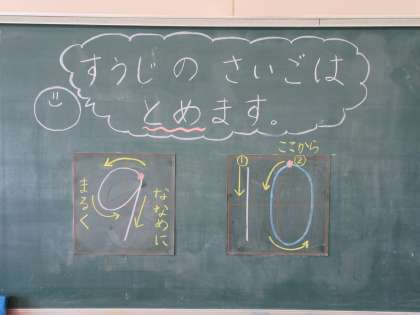 すうじの さいごは
とめます。
まるく
9
ななめに
ここから
① ②
10